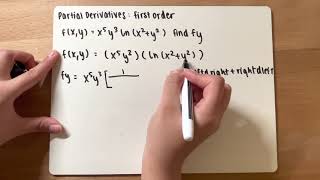 Partial Derivatives : First Order
f(x,y) = x⁵y³ ln (x²+y³) find fy
f(x,y) = (x⁵y²)(ln(x²+y²))
fy = x⁵y² [ 1 right + right d